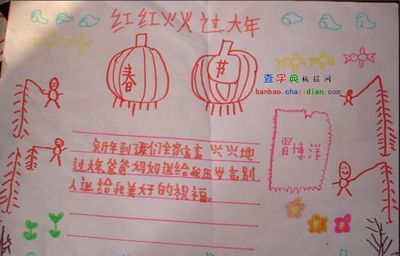 红红火火过大年
春 节
查字典 板报网
banbao.chazidian.com
新年到我们全家高高兴兴地
过大年爸爸妈妈送给我压岁 别
人送给我美好的祝福。
博洋